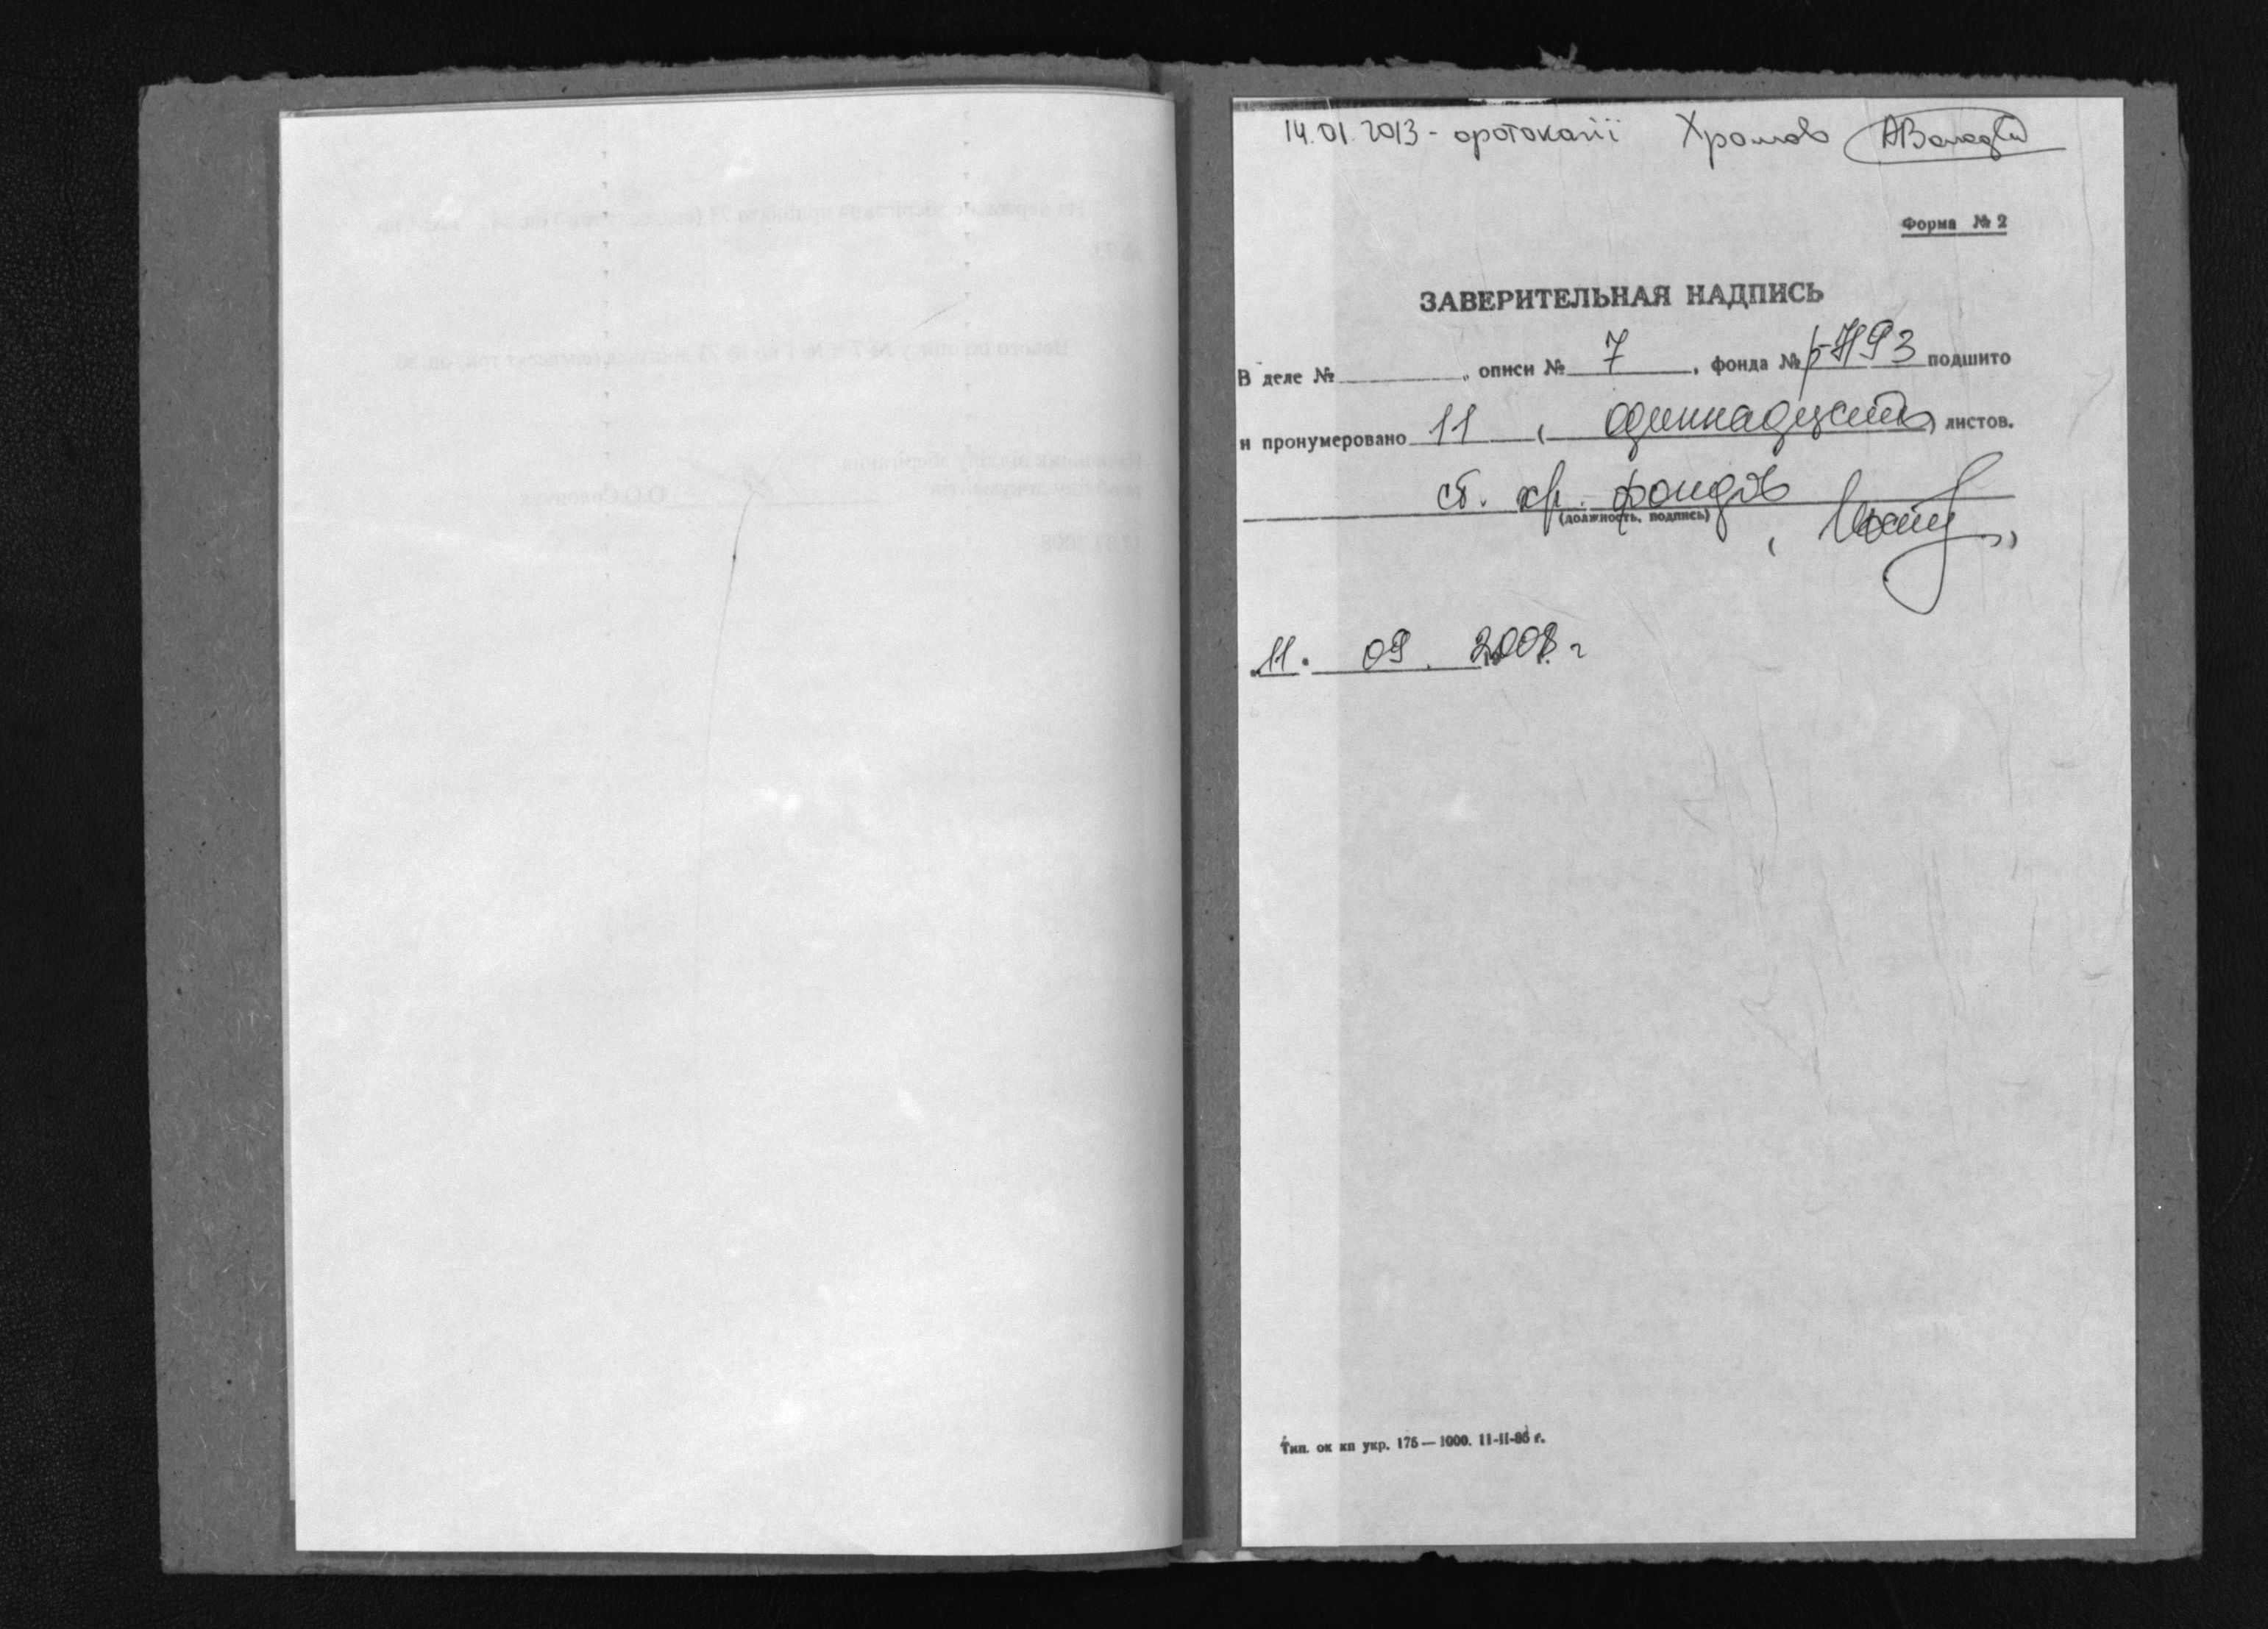 14.01.2013 - фотокопії Храмов
Форма № 2
ЗАВЕРИТЕЛЬНАЯ НАДПИСЬ
В деле № , описи № 7 , фонда № подшито
и пронумеровано 11 ( одиннадцать ) листов.
ст. хр. фондов
(должность, подпись)
11. 09. 2008 г
Тип. ок кп укр. 175 — 1000. 11-II-86 г.